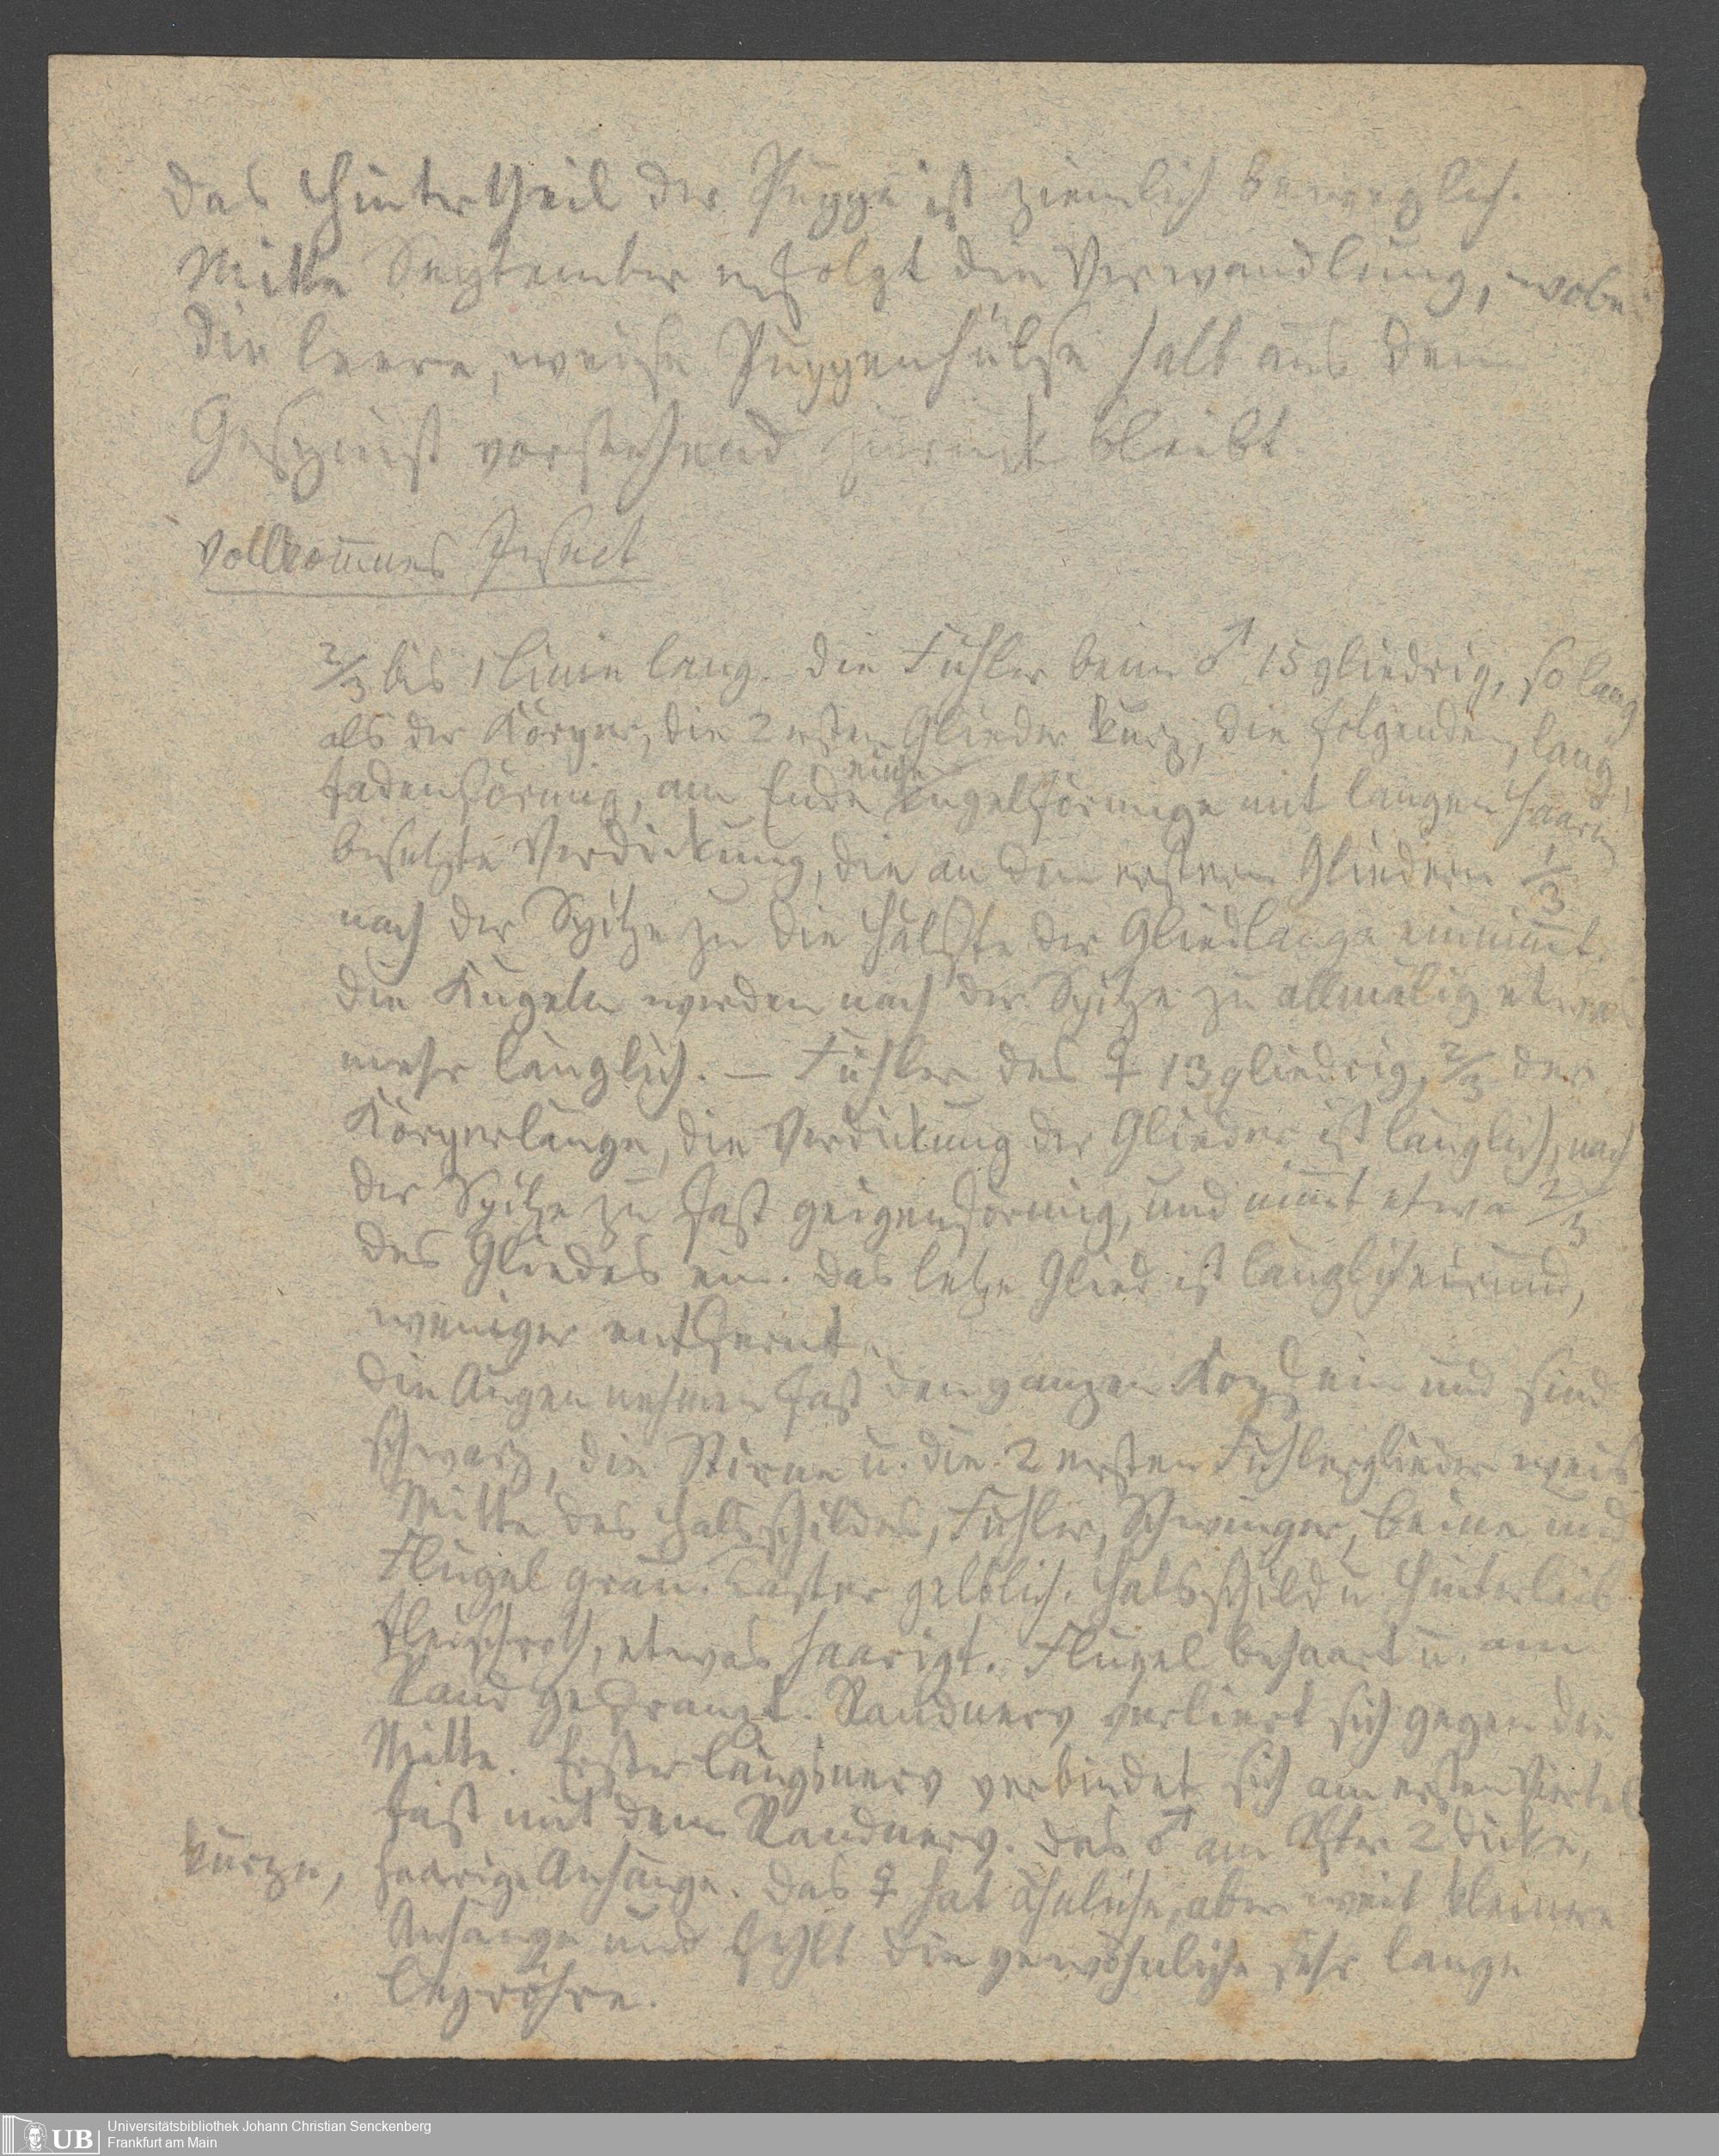 das Hintertheil der Puppe ist ziemlich beweglich.
Mitte September erfolgt die Verwandlung, wobei
die leere, weiße Puppenhülse halb aus dem
Gespinst vorstehend zurück bleibt.
Vollkom̅nes Insect
2/3 bis 1 Linie lang. die Fühler beim ♂ 15gliedrig, so lang
als der Körper, die 2 ersten Glieder kurz, die folgenden, lang,
fadenförmig, am Ende eine kugelförmige mit langen Haaren
besetzte Verdickung, die an den erstern Gliedern 1/3
nach der Spitze zu die Hälfte der Gliedlänge einnim̅t.
die Kugeln werden nach der Spitze zu allmälig etwas
mehr länglich. — Fühler des ♀ 13gliedrig, 2/3 der
Körperlänge, die Verdickung der Glieder ist länglich, nach
der Spitze zu fast geigenförmig, und nim̅t etwa 2/3
des Gliedes ein. das letze Glied ist länglicheirund,
weniger entfernt.
die Augen nehmen fast den ganzen Kopf ein und sind
schwarz, die Stirne u. die 2 ersten Fühlerglieder weis
Mitte des Halsschildes, Fühler, Schwinger, Beine und
Flügel grau. Taster gelblich. Halsschild u Hinterleib
fleischroth, etwas haarigt. Flügel behaart u. am
Rand gefranzt. Randnerv verliert sich gegen die
Mitte. Erster Längsnerv verbindet sich am ersten Viertel
fast mit dem Randnerv. das ♂ am After 2 dicke,
kurze, haarige Anhänge. das ♀ hat ähnliche, aber weit kleinere
Anhänge und fehlt die gewöhnliche sehr lange
Legröhre.
Universitätsbibliothek Johann Christian Senckenberg
Frankfurt am Main
UB